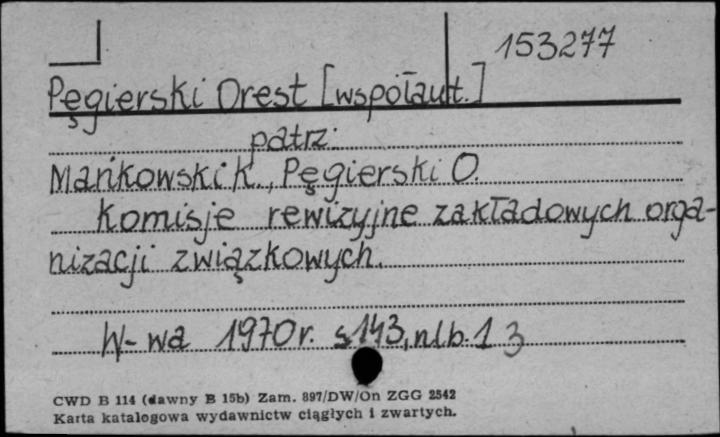 153277
Pęgierski Orest [współaut.]
patrz:
Mańkowski K., Pęgierski O.
Komisje rewizyjne zakładowych orga-
nizacji związkowych.
W-wa 1970r. s.143, nlb.1 3
CWD B 114 (dawny B 15b) Zam. 897/DW/On ZGG 2542
Karta katalogowa wydawnictw ciągłych i zwartych.